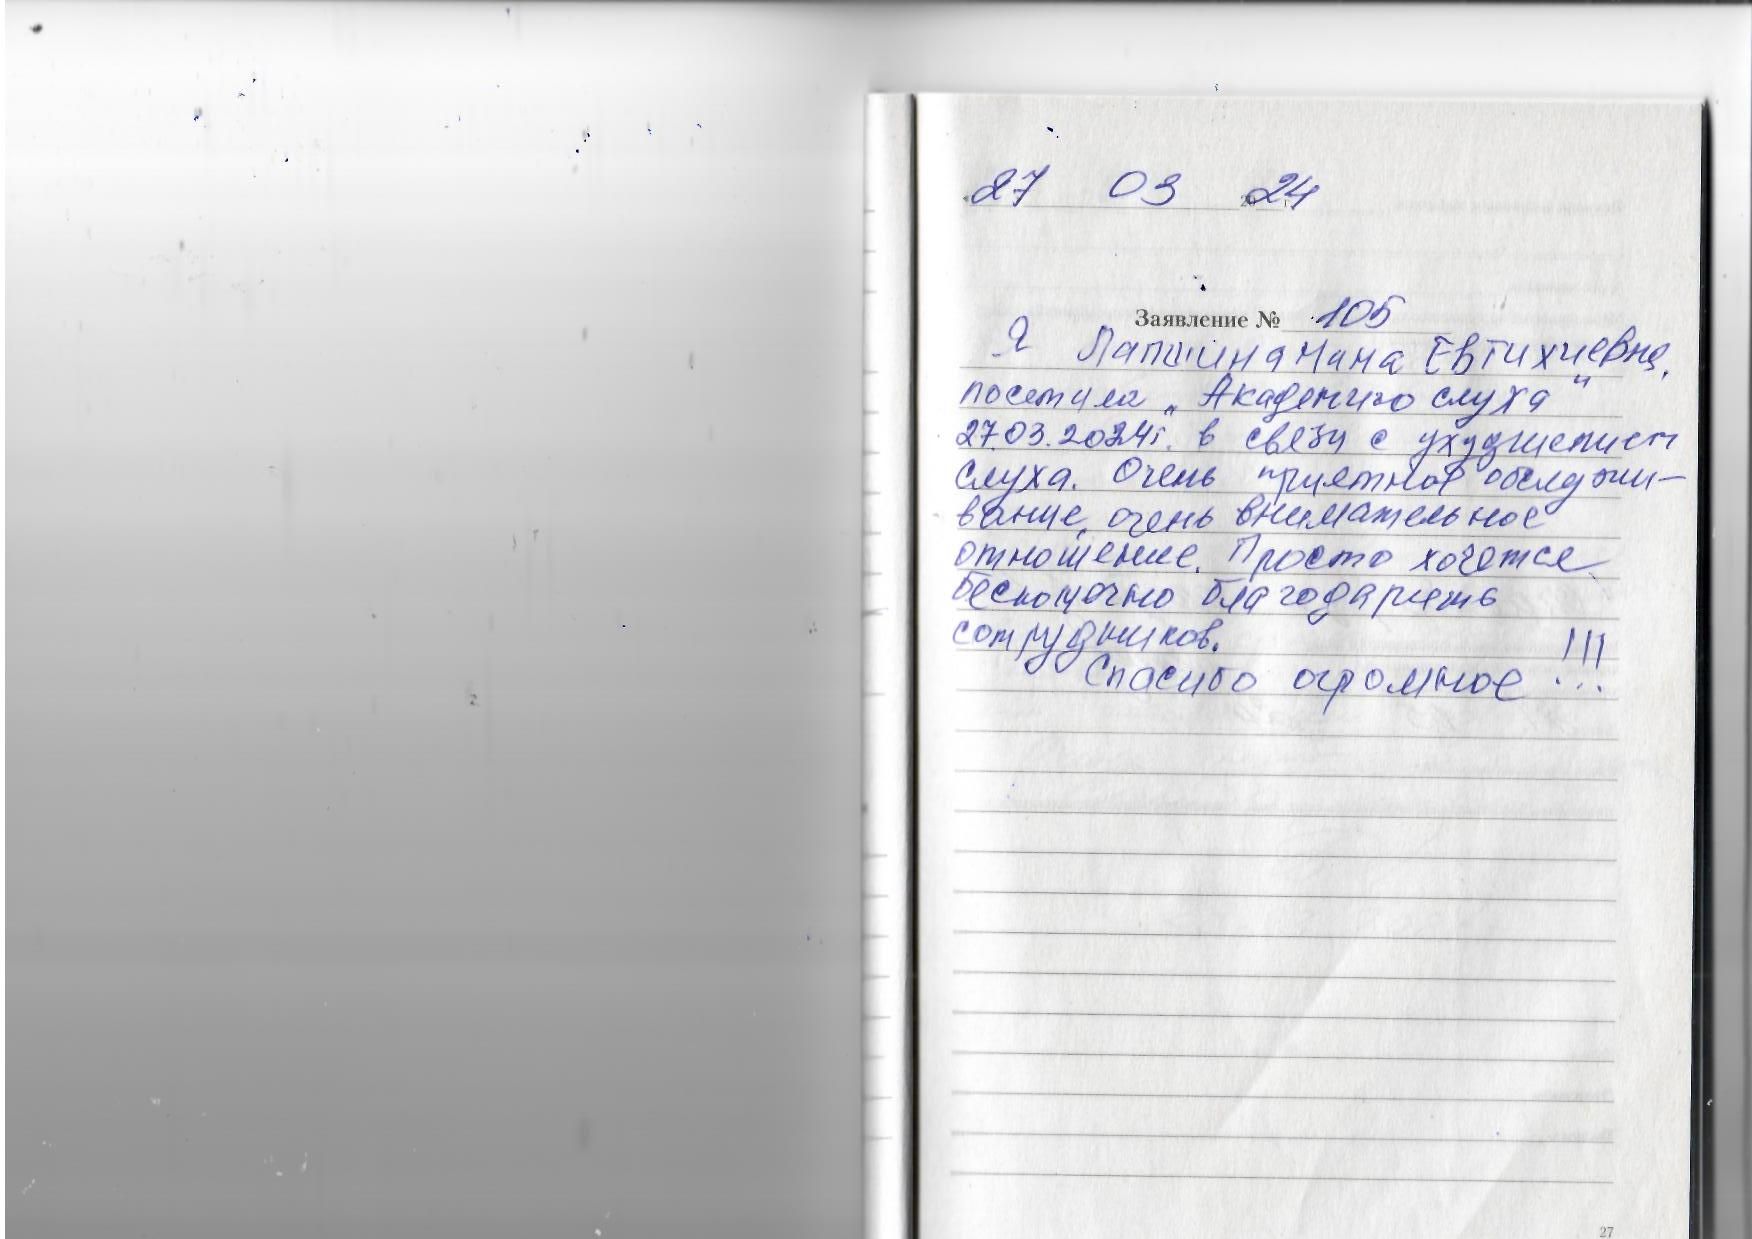 27 03 2024
Заявление № 105
Я Лапшина Нина Евтихиевна,
посетила „Академию слуха"
27.03.2024г. в связи с ухудшением
слуха. Очень приятное обслужи-
вание, очень внимательное
отношение. Просто хочется
бесконечно благодарить
сотрудников.
Спасибо огромное !!!
27